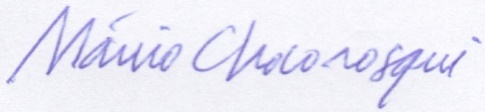 Mário Chocorosqui